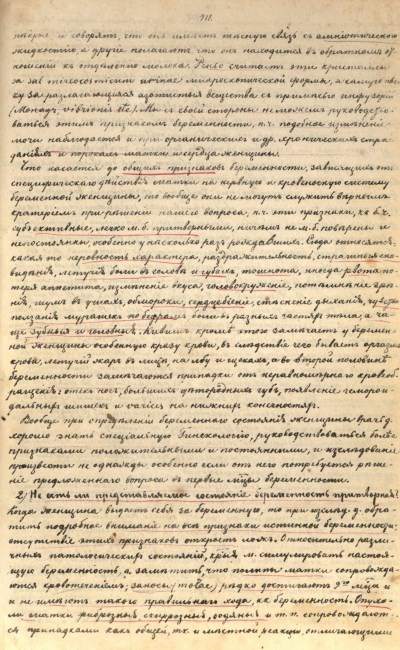 311.
наброе и говорятъ, что она имѣетъ тѣсную связь съ амніотическою
жидкостію, а другіе полагаютъ что она находится въ обратномъ от-
ношеніи къ отдѣленію молока. считаетъ эти кристаллы
за микроскопической формы, а самую плен-
ку за разлагающіяся азотистыя вещества съ примѣсью инфузорій
(Монадъ, vibrionis etc.) Мы съ своей стороны не можемъ руководство-
ваться этимъ признакомъ беременности, п.ч. подобное измѣненіе
мочи наблюдается и при органическихъ и др. хроническихъ стра-
даніяхъ и порокахъ матки и сердца женщины.
Что касается до общихъ признаковъ беременности, зависящихъ отъ
специфическаго дѣйствія матки на нервную и кровеносную систему
беременной женщины, то вообще они не могутъ служить вѣрнымъ
критеріемъ при рѣшеніи нашего вопроса, п.ч. эти признаки, какъ б.ч.
субъективные, легко м.б. притворными, ничѣмъ не м.б. повѣрены и
непостоянны, особенно у нѣсколько разъ рождавшихъ. Сюда относятся:
какая то неровность характера, раздражительность, странныя сно-
видѣнія, летучія боли въ головѣ и зубахъ, тошнота, иногда рвота, по-
теря аппетита, измѣненіе вкуса, головокруженіе, потемнѣніе зрѣ-
нія, шумъ въ ушахъ, обмороки, сердцебіеніе, стѣсненіе дыханія, чувство
ползанія мурашекъ по бедрамъ, боли въ разныхъ частяхъ тѣла, а ча-
ще зубныя и головныя. кромѣ этого замѣчаетъ у беремен-
ной женщины особенную кразу крови, въ слѣдствіе чего бываетъ оргазмъ
крова, летучій жаръ въ лицѣ, на лбу и щекахъ, а во второй половинѣ
беременности замѣчаются припадки отъ неравномѣрнаго кровооб-
ращенія: отекъ ногъ, большихъ дѣтородныхъ губъ, появленіе геморои-
дальныхъ шишекъ и varices на нижнихъ конечностяхъ.
Вообще при опредѣленіи беременнаго состоянія женщины врачъ д.
хорошо знать спеціальную Гинекологію, руководствоваться болѣе
признаками положительными и постоянными, и изслѣдованіе
произвести не однажды особенно если отъ него потребуется рѣше-
ніе предложеннаго вопроса въ первые мѣсяцы беременности.
2) Не есть ли представляемое состояніе беременность притворная?
Когда женщина выдаетъ себя за беременную, то при изслѣд. д. обра-
тить подробное вниманіе на всѣ признаки истинной беременности,
отсутствіе этихъ признаковъ откроетъ ложь. Относительно разли-
чныхъ патологическихъ состояній, кои м. симулировать настоя-
щую беременность, я замѣчу, что полипы матки сопровожда-
ются кровотеченіемъ, заносы (molae) рѣдко достигаютъ 9го мѣсяца и
и не имѣютъ такого правильнаго хода, какъ беременность. Опухо-
ли матки фиброзныя, скиррозныя, водяныя и т.п. сопровождают-
ся припадками какъ общей, такъ и мѣстной реакціи, отличающимися